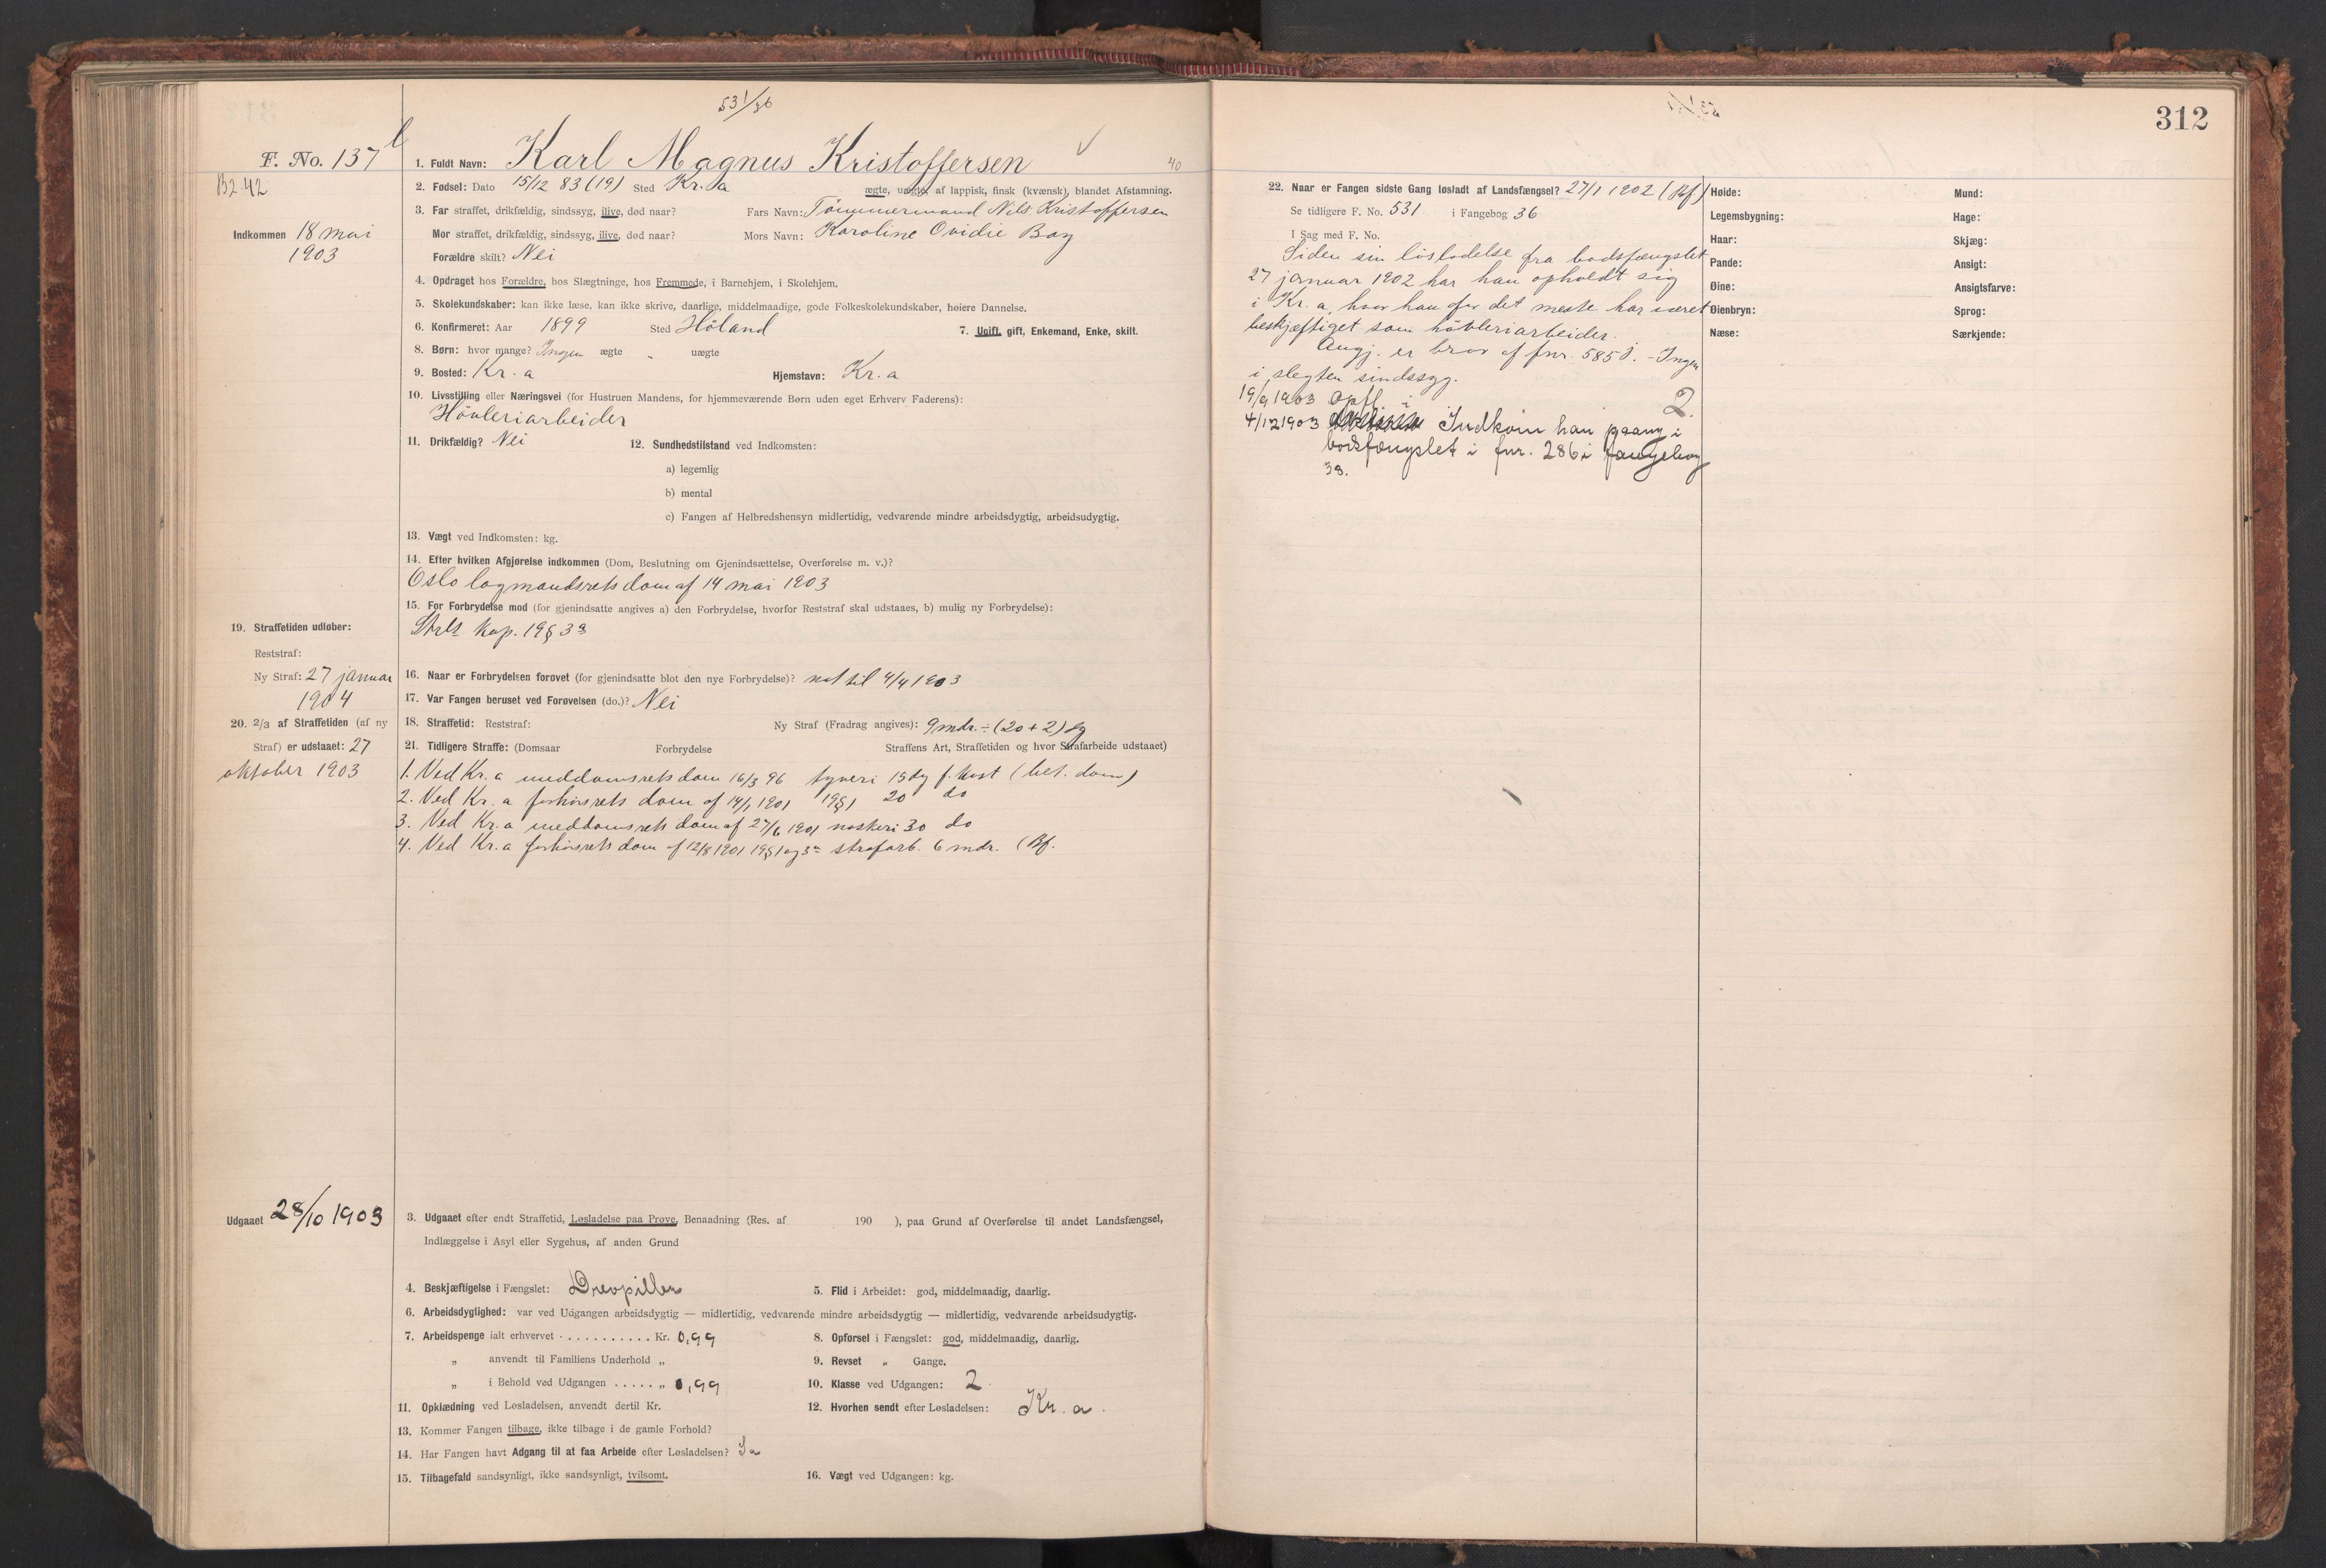 531/36
F. No. 137 b
B2 42
Indkommen 18 mai
1903
1. Fuldt Navn: Karl Magnus Kristoffersen
40
2. Fødsel: Dato 15/12 83 (19) Sted Kr. a ægte, uægte, af lappisk, finsk (kvænsk), blandet Afstamning.
3. Far straffet, drikfældig, sindssyg, ilive, død naar? Fars Navn: Tömmermand Nils Kristoffersen
Mor straffet, drikfældig, sindssyg, ilive, død naar? Mors Navn: Karoline Ovidie Bay
Forældre skilt? Nei
4. Opdraget hos Forældre, hos Slægtninge, hos Fremmede, i Barnehjem, i Skolehjem.
5. Skolekundskaber: kan ikke læse, kan ikke skrive, daarlige, middelmaadige, gode Folkeskolekundskaber, høiere Dannelse.
6. Konfirmeret: Aar 1899 Sted Höland 7. Ugift, gift, Enkemand, Enke, skilt.
8. Børn: hvor mange? Ingen ægte „ uægte
9. Bosted: Kr. a Hjemstavn: Kr. a
10. Livsstilling eller Næringsvei (for Hustruen Mandens, for hjemmeværende Børn uden eget Erhverv Faderens):
Hövleriarbeider
11. Drikfældig? Nei 12. Sundhedstilstand ved Indkomsten:
a) legemlig
b) mental
c) Fangen af Helbredshensyn midlertidig, vedvarende mindre arbeidsdygtig, arbeidsudygtig.
13. Vægt ved Indkomsten: kg.
14. Efter hvilken Afgjørelse indkommen (Dom, Beslutning om Gjenindsættelse, Overførelse m. v.)?
Oslo lagmandsrets dom af 14 mai 1903
15. For Forbrydelse mod (for gjenindsatte angives a) den Forbrydelse, hvorfor Reststraf skal udstaaes, b) mulig ny Forbrydelse):
kap. 19 § 3
19. Straffetiden udløber:
Reststraf:
Ny Straf: 27 januar
1904
16. Naar er Forbrydelsen forøvet (for gjenindsatte blot den nye Forbrydelse)? nat til 4/4 1903
17. Var Fangen beruset ved Forøvelsen (do.)? Nei
20. 2/3 af Straffetiden (af ny
Straf) er udstaaet: 27
oktober 1903
18. Straffetid: Reststraf: Ny Straf (Fradrag angives): 9 mdr. ÷ (20 + 2) dg
21. Tidligere Straffe: (Domsaar Forbrydelse Straffens Art, Straffetiden og hvor Strafarbeide udstaaet)
1. Ved Kr. a meddomsrets dom 16/3 96 tyveri 15 dg f. kost (bet. dom)
2. Ved Kr. a forhørsrets dom af 14/1 1901 19 § 1 20 do
3. Ved Kr. a meddomsrets dom af 27/6 1901 naskeri 30 do
4. Ved Kr. a forhørsrets dom af 12/8 1901 19 § 1 og 3 strafarb. 6 mdr. (Bf.
Udgaaet 28/10 1903
3. Udgaaet efter endt Straffetid, Løsladelse paa Prøve, Benaadning (Res. af 190 ), paa Grund af Overførelse til andet Landsfængsel,
Indlæggelse i Asyl eller Sygehus, af anden Grund
4. Beskjæftigelse i Fængslet: Drevpiller 5. Flid i Arbeidet: god, middelmaadig, daarlig.
6. Arbeidsdyglighed: var ved Udgangen arbeidsdygtig — midlertidig, vedvarende mindre arbeidsdygtig — midlertidig, vedvarende arbeidsudygtig.
7. Arbeidspenge ialt erhvervet . . . . . . . . . . . Kr. 0,99 8. Opførsel i Fængslet: god, middelmaadig, daarlig.
„ anvendt til Familiens Underhold „ 9. Revset „ Gange.
„ i Behold ved Udgangen . . . . . „ 0,99 10. Klasse ved Udgangen: 2
11. Opklædning ved Løsladelsen, anvendt dertil Kr. 12. Hvorhen sendt efter Løsladelsen: Kr. a.
13. Kommer Fangen tilbage, ikke tilbage i de gamle Forhold?
14. Har Fangen havt Adgang til at faa Arbeide efter Løsladelsen? Ja
15. Tilbagefald sandsynligt, ikke sandsynligt, tvilsomt. 16. Vægt ved Udgangen: kg.
312
22. Naar er Fangen sidste Gang løsladt af Landsfængsel? 27/1 1902 (Bf.)
Se tidligere F. No. 531 i Fangebog 36
I Sag med F. No.
Siden sin lösladelse fra bodsfængslet
27 januar 1902 har han opholdt sig
i Kr. a, hvor han for det meste har været
beskjæftiget som hövleriarbeider.
Angj. er bror af fnr. 585 i. - Ingen
i slegten sindssyg.
19/9 1903 Opfl. i 2.
4/12 1903 Indkom han paany i
bodsfængslet i fnr. 286 i fangebog
38.
Høide: Mund:
Legemsbygning: Hage:
Haar: Skjæg:
Pande: Ansigt:
Øine: Ansigtsfarve:
Øienbryn: Sprog:
Næse: Særkjende: